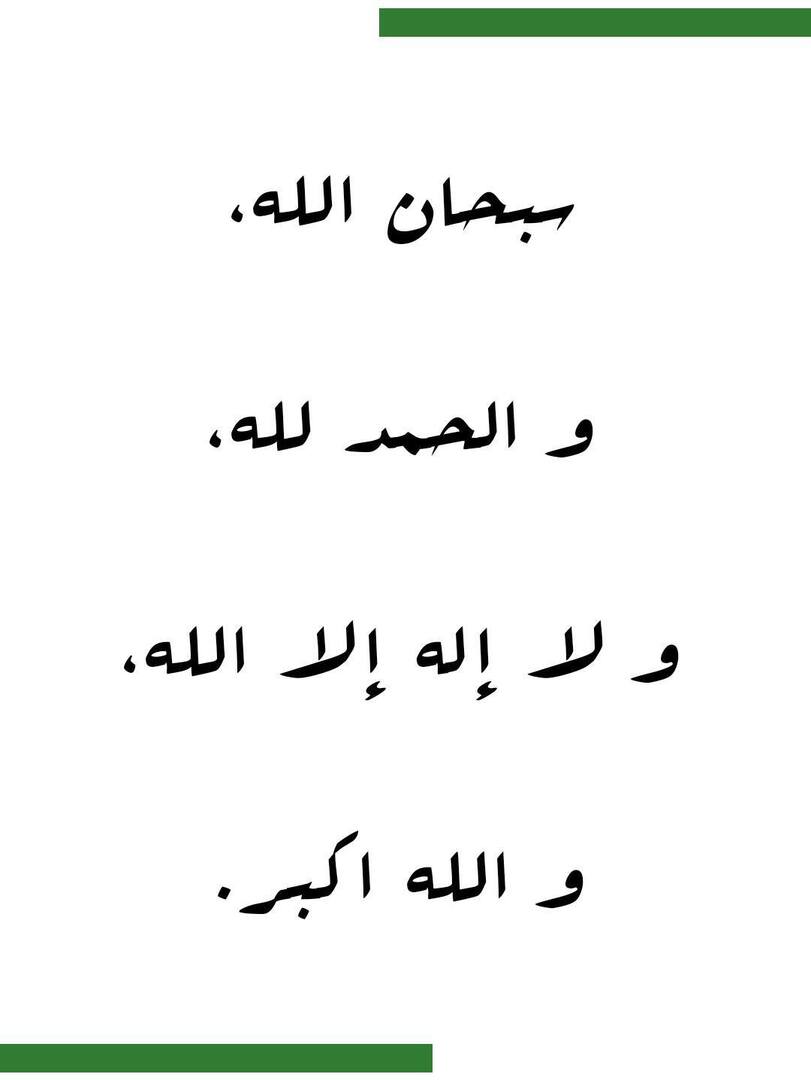 سبحان الله،
و الحمد لله،
و لا إله إلا الله،
و الله اكبر.